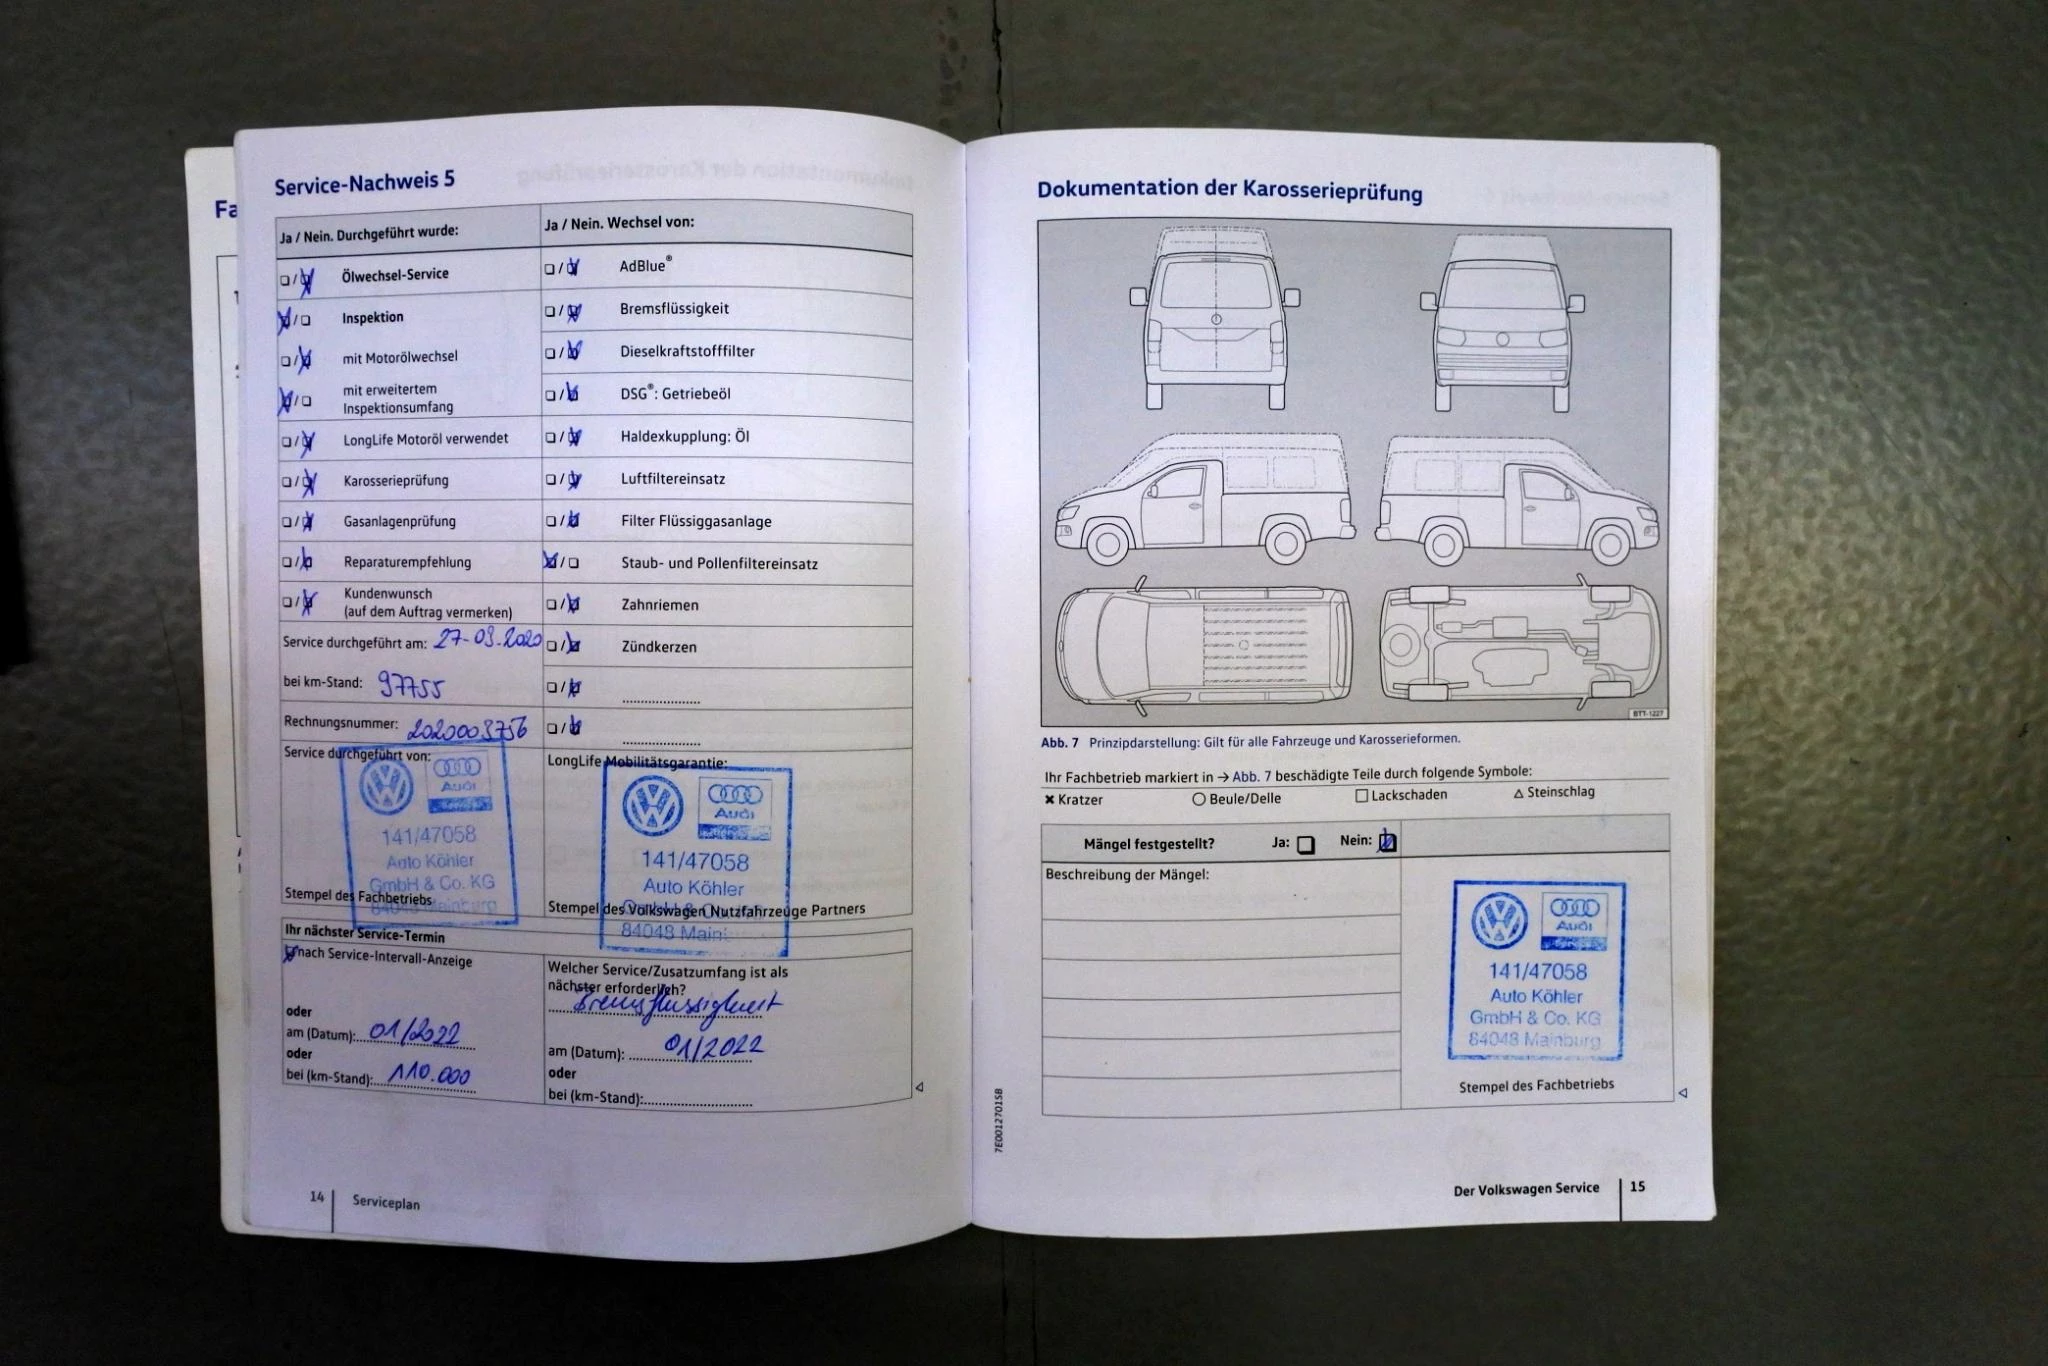 Fa
Service-Nachweis 5
Ja / Nein. Durchgeführt wurde:
Ölwechsel-Service
Inspektion
mit Motorölwechsel
mit erweitertem
Inspektionsumfang
LongLife Motoröl verwendet
Karosserieprüfung
Gasanlagenprüfung
Reparaturempfehlung
Kundenwunsch
(auf dem Auftrag vermerken)
Service durchgeführt am: 27-09.2020
bei km-Stand: 97755
Rechnungsnummer: 2020003756
Service durchgeführt von:
Audi
141/47058
Auto Köhler
GmbH & Co. KG
84048 Mainburg
Stempel des Fachbetriebs
Ja / Nein. Wechsel von:
AdBlue®
Bremsflüssigkeit
Dieselkraftstofffilter
DSG®: Getriebeöl
Haldexkupplung: Öl
Luftfiltereinsatz
Filter Flüssiggasanlage
Staub- und Pollenfiltereinsatz
Zahnriemen
Zündkerzen
LongLife Mobilitätsgarantie:
Audi
141/47058
Auto Köhler
84048
Stempel des Volkswagen Nutzfahrzeuge Partners
Ihr nächster Service-Termin
nach Service-Intervall-Anzeige
oder
am (Datum): 01/2022
oder
bei (km-Stand): 110.000
Welcher Service/Zusatzumfang ist als
nächster erforderlich?
Bremsflüssigkeit
am (Datum): 01/2022
oder
bei (km-Stand):
14 Serviceplan
Dokumentation der Karosserieprüfung
BTT-1227
Abb. 7 Prinzipdarstellung: Gilt für alle Fahrzeuge und Karosserieformen.
Ihr Fachbetrieb markiert in → Abb. 7 beschädigte Teile durch folgende Symbole:
✖ Kratzer ○ Beule/Delle □ Lackschaden △ Steinschlag
Mängel festgestellt? Ja: Nein:
Beschreibung der Mängel:
Audi
141/47058
Auto Köhler
GmbH & Co. KG
84048 Mainburg
Stempel des Fachbetriebs
7E0012701SB
Der Volkswagen Service 15